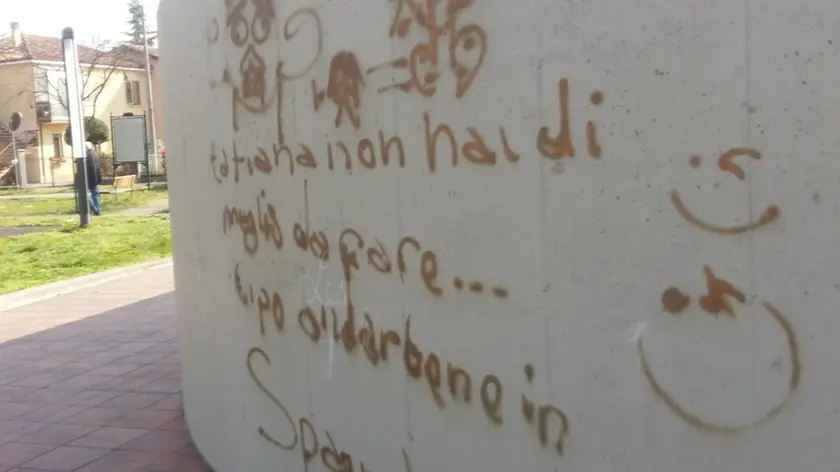 tatiana non hai di
meglio da fare...
tipo andartene in